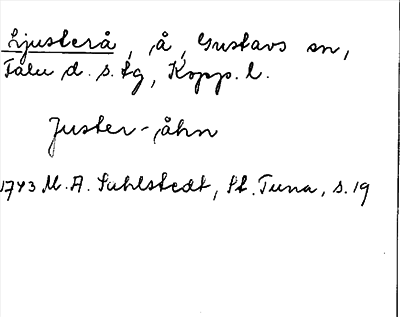 Ljusterå, å, Gustavs sn,
Falu d. s. tg, Kopp. l.
Juster-åhn
1743 M. A. Sahlstedt, St. Tuna, s. 19